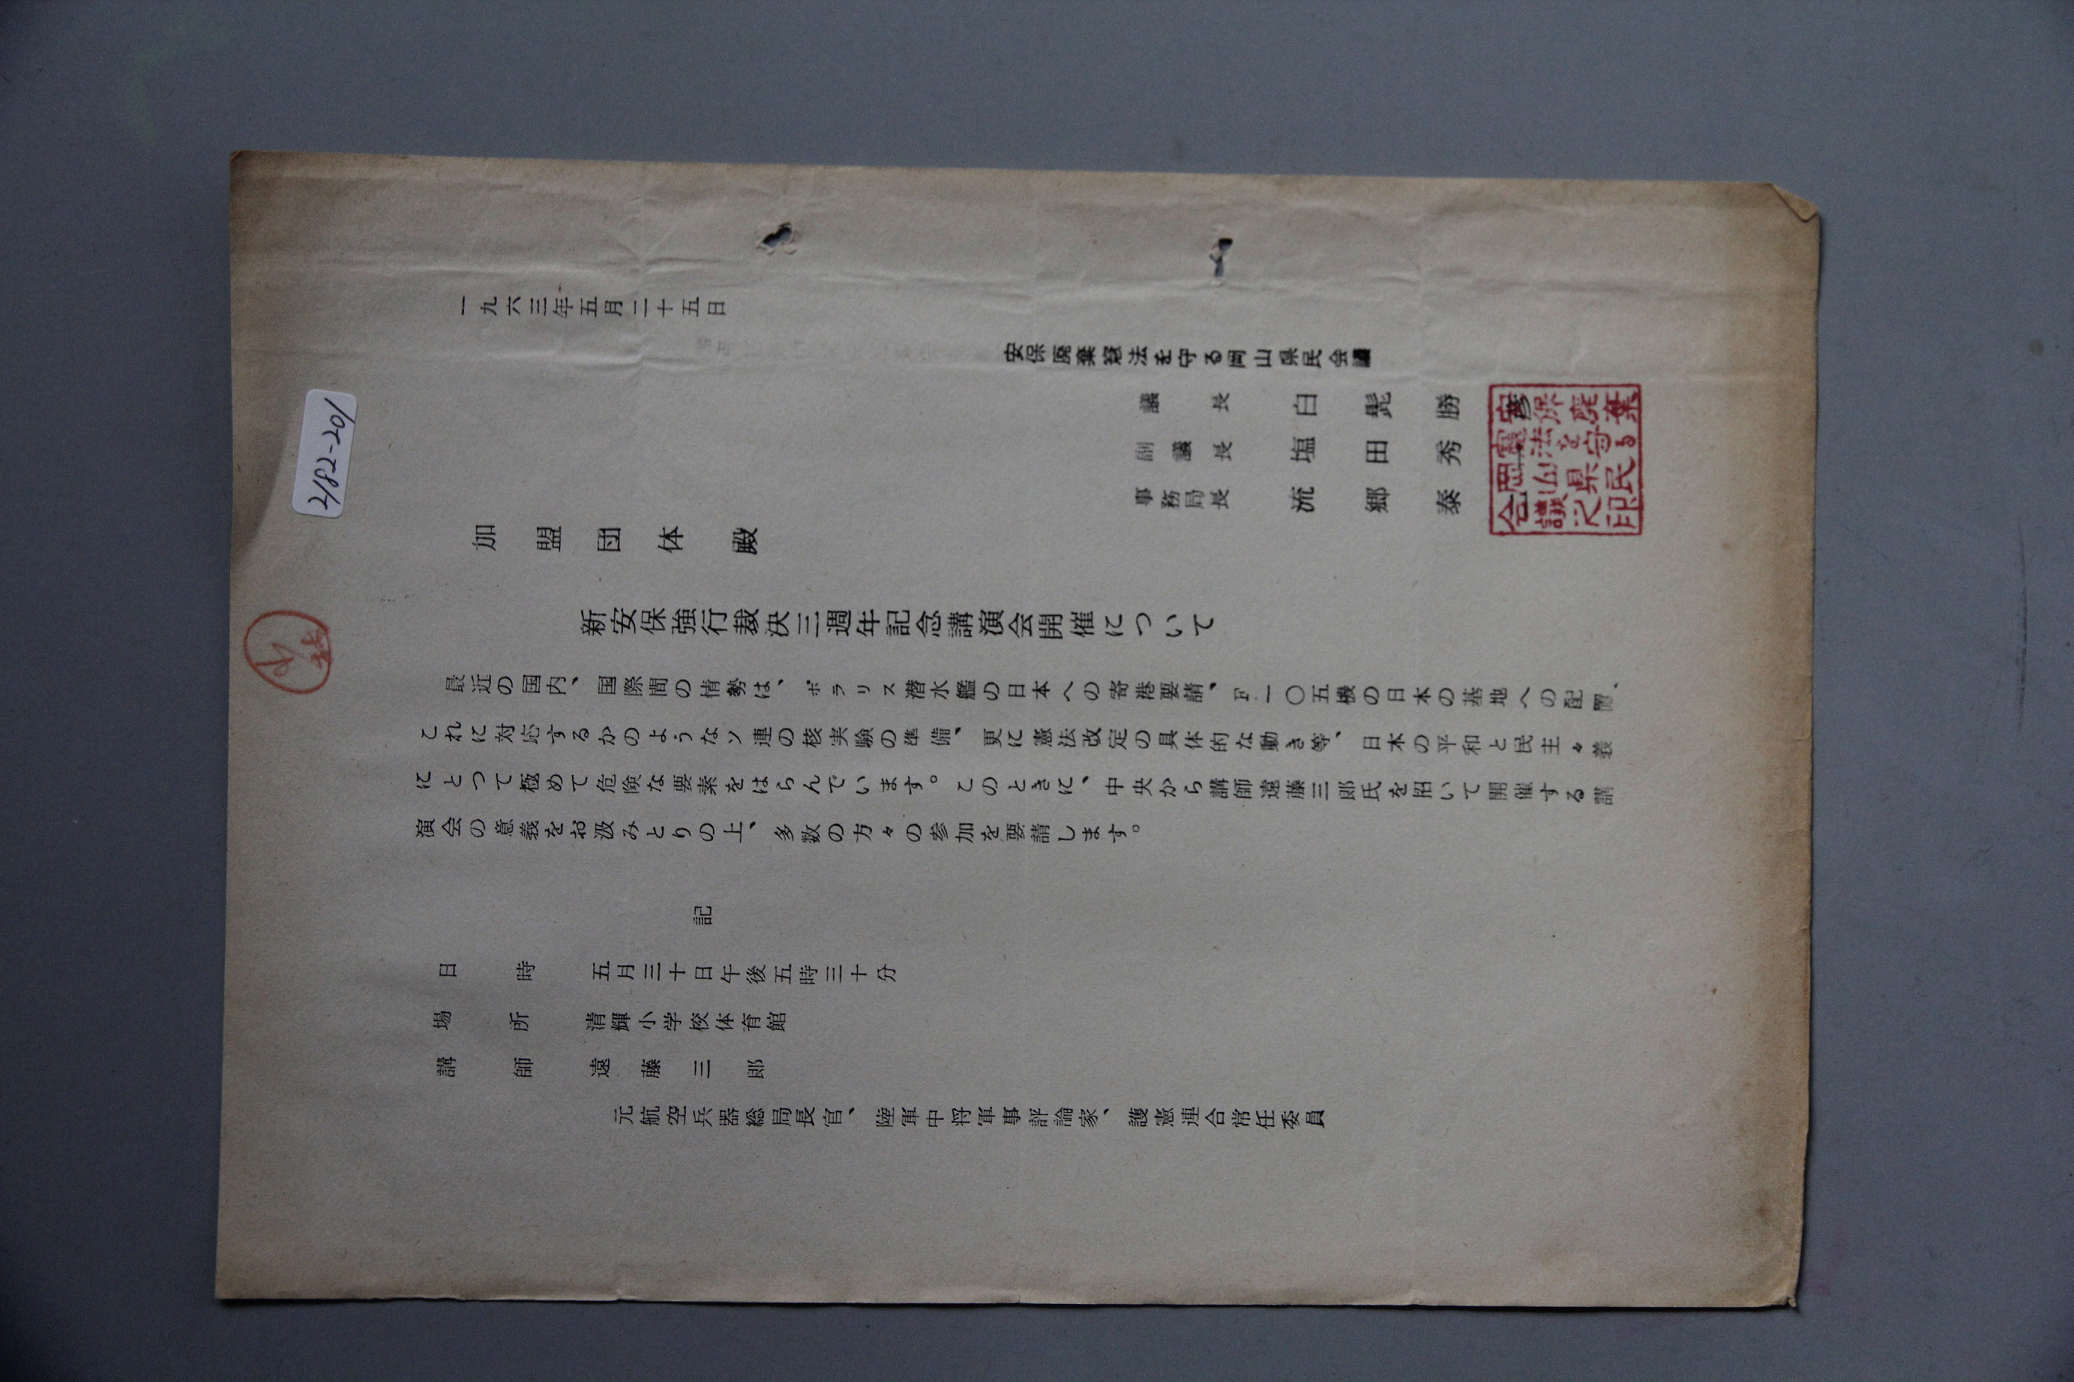 一九六三年五月二十五日
安保廃棄憲法を守る岡山県民会議
議長 白髭勝彦
副議長 塩田秀
事務局長 流郷泰
安保廃棄
憲法を守る
岡山県民
会議之印
加盟団体殿
新安保強行裁決三週年記念講演会開催について
最近の国内、国際間の情勢は、ポラリス潜水艦の日本への寄港要請、F一〇五機の日本の基地への配置、
これに対応するかのようなソ連の核実験の準備、更に憲法改定の具体的な動き等、日本の平和と民主々義
にとつて極めて危険な要素をはらんでいます。このときに、中央から講師遠藤三郎氏を招いて開催する講
演会の意義をお汲みとりの上、多数の方々の参加を要請します。
記
日時 五月三十日午後五時三十分
場所 清輝小学校体育館
講師 遠藤三郎
元航空兵器総局長官、陸軍中将軍事評論家、護憲連合常任委員
2182-201